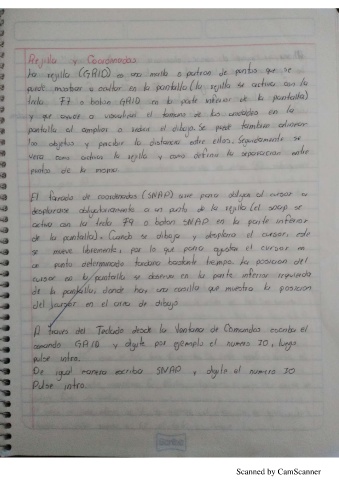 Rejilla y Coordenadas
La rejilla (GRID) es una malla o patron de puntos que se
puede mostrar u ocultar en la pantalla (la rejilla se activa con la
tecla F7 o boton GRID en la parte inferior de la pantalla)
y que ayuda a visualizar el tamaño de las unidades en la
pantalla al ampliar o reducir el dibujo. Se puede tambien alinear
los objetos y percibir la distancia entre ellos. Seguidamente se
vera como activar la rejilla y como definir la separacion entre
puntos de la misma.
El forzado de coordenadas (SNAP) que obliga al cursor a
desplazarse obligatoriamente a un punto de la rejilla (el snap se
activa con la tecla F9 o boton SNAP en la parte inferior
de la pantalla). Cuando se dibuja y desplaza el cursor, este
se mueve libremente, por lo que para ajustar el cursor en
un punto determinado tardaria bastante tiempo. La posicion del
cursor en la pantalla se observa en la parte inferior izquierda
de la pantalla, donde hay una casilla que muestra la posicion
del cursor en el area de dibujo
A traves del Teclado desde la Ventana de Comandos escriba el
comando GRID y digite por ejemplo el numero 10, luego
pulse intro.
De igual manera escriba SNAP y digite el numero 10
Pulse intro.
Scribe
Scanned by CamScanner